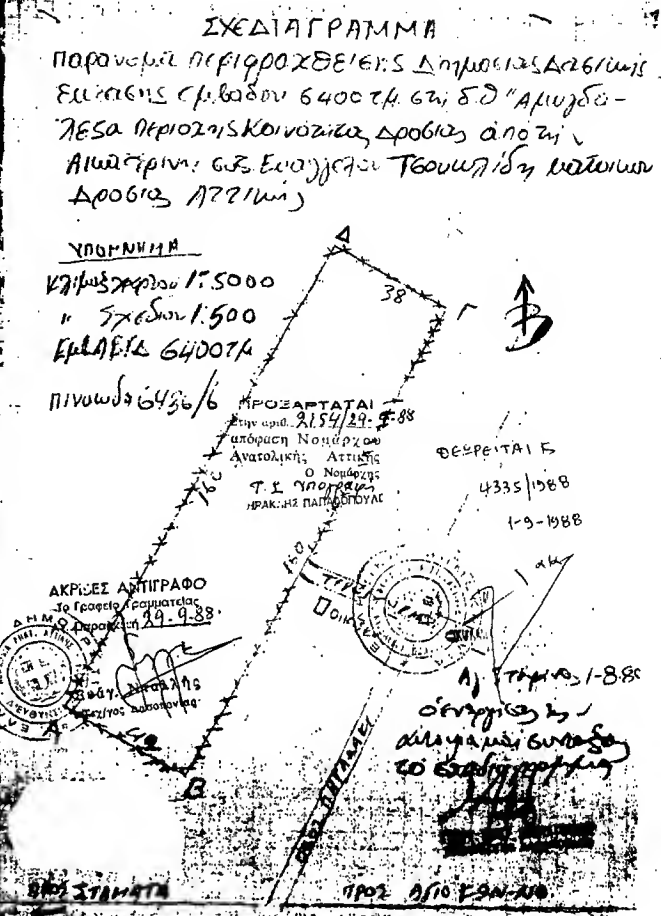 ΣΧΕΔΙΑΓΡΑΜΜΑ
Παρανομα περιφραχθείσης Δημοσίας Δασικής
Εκτασης εμβαδου 6400 τμ. στη δ.θ "Αμυγδα-
λεζα περιοχης Κοινότητας Δροσιας από τη
Αικατερινη συζ. Ευαγγελου Τσουκλίδη κατοικου
Δροσιας Αττικης
ΥΠΟΜΝΗΜΑ
Κλιμαξ χαρτου 1:5000
" Σχεδιου 1:500
Εμβαδα 6400 τμ
πινακιδα 6436/6
Δ
38
Γ
Β
ΠΡΟΣΑΡΤΑΤΑΙ
Στην αριθ. 2154/29-9-88
απόφαση Νομάρχου
Ανατολικής Αττικής
Ο Νομάρχης
Τ.Σ. Υπογραφη
ΗΡΑΚΛΗΣ ΠΑΠΑΔΟΠΟΥΛΟΣ
ΘΕΩΡΕΙΤΑΙ
4335/1988
1-9-1988
160
160
ΑΚΡΙΒΕΣ ΑΝΤΙΓΡΑΦΟ
Το Γραφείο Γραμματείας
29-9-88
Α
42
Β
Αγ. Στεφανος 1-8-88
ο ενεργησας τη
αυτοψια και συνταξας
το σχεδιαγραμμα
ΠΡΟΣ ΣΤΑΜΑΤΑ
ΠΡΟΣ ΑΓΙΟ